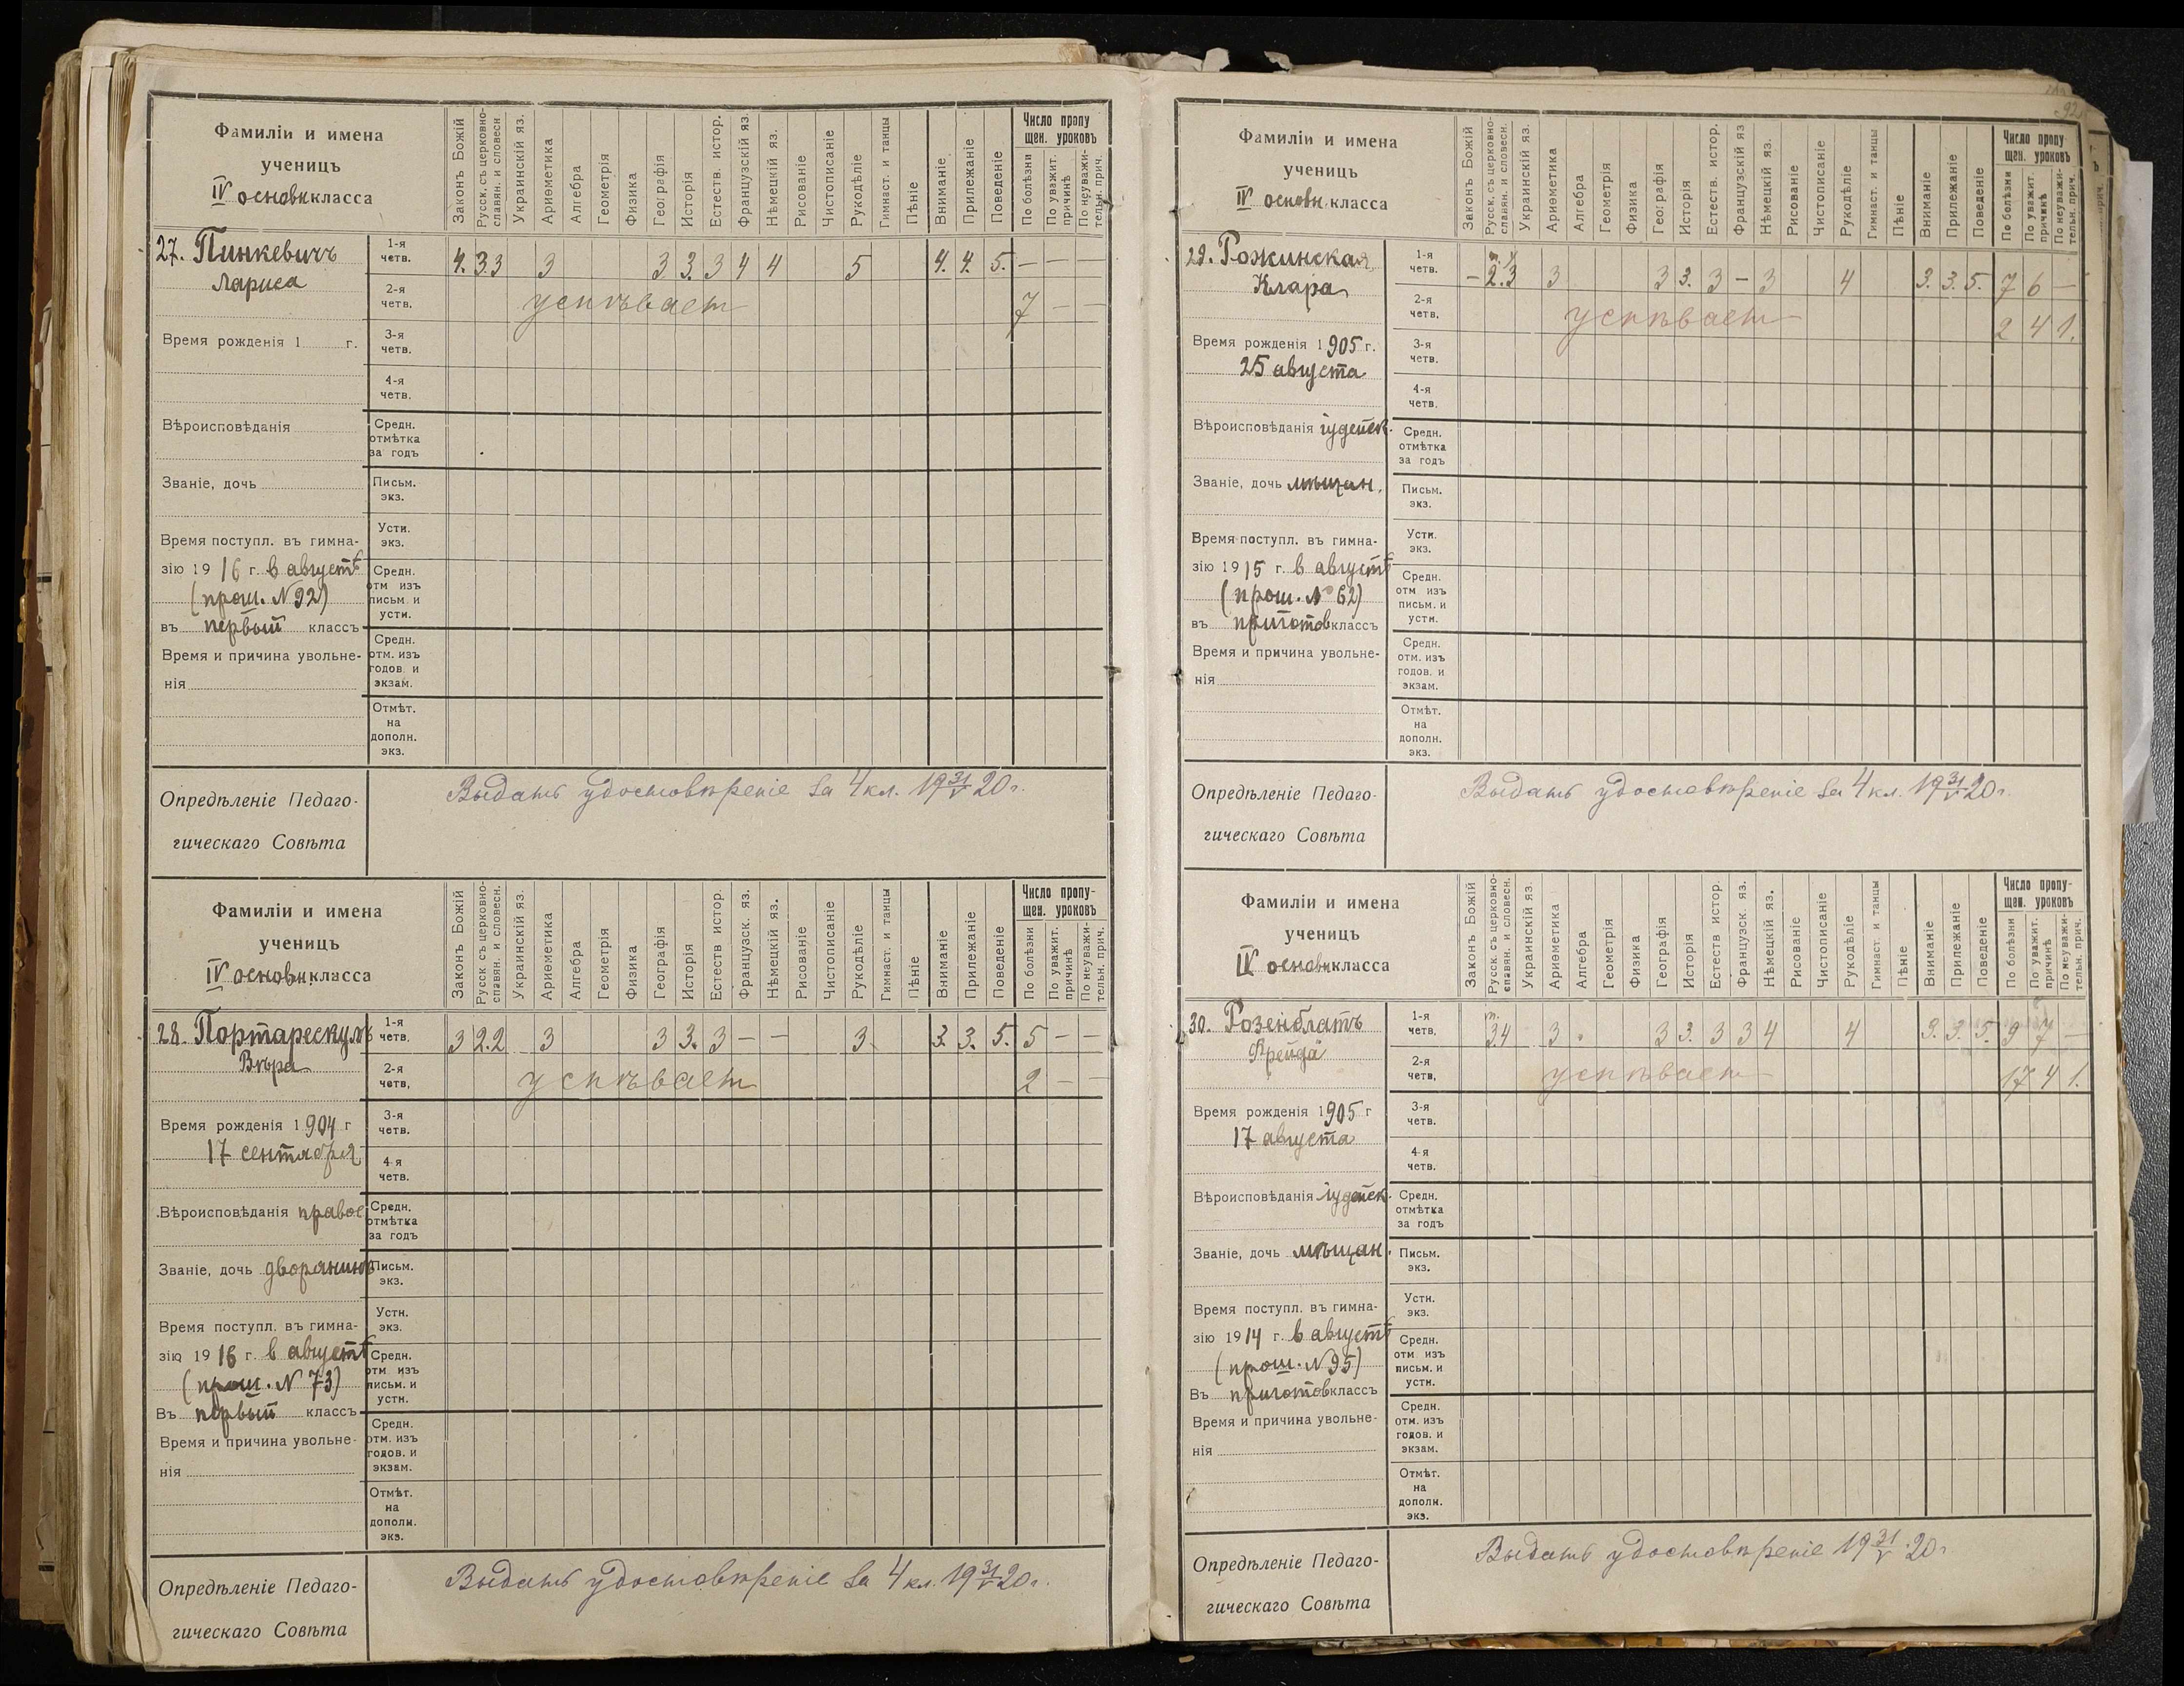 92
Фамиліи и имена
ученицъ
IV основн класса
Законъ Божій
Русск. съ церковно-
славян. и словесн
Украинскій яз.
Ариѳметика
Алгебра
Геометрія
Физика
Географія
Исторія
Естеств. истор.
Французскій яз.
Нѣмецкій яз.
Рисованіе
Чистописаніе
Рукодѣліе
Гимнаст. и танцы
Пѣніе
Вниманіе
Прилежаніе
Поведеніе
Число пропу
щен. уроковъ
По болѣзни
По уважит.
причинѣ
По неуважи-
тельн. прич.
27. Пинкевичъ
Лариса
1-я
четв.
4. 3 3 3 3 3. 3 4 4 5 4. 4. 5. — — —
2-я
четв.
успѣвает 7 — —
Время рожденія 1 г.
3-я
четв.
4-я
четв.
Вѣроисповѣданія
Средн.
отмѣтка
за годъ
Званіе, дочь
Письм.
экз.
Время поступл. въ гимна-
зію 1916 г. в августѣ
(прош. N 92)
въ первый классъ
Устн.
экз.
Средн.
отм изъ
письм. и
устн.
Время и причина увольне-
нія
Средн.
отм. изъ
годов. и
экзам.
Отмѣт.
на
дополн.
экз.
Опредѣленіе Педаго-
гическаго Совѣта
Выдать удостовѣреніе за 4 кл. 19 31/V 20 г.
Фамиліи и имена
ученицъ
IV основн класса
Законъ Божій
Русск съ церковно-
славян. и словесн.
Украинскій яз.
Ариѳметика
Алгебра
Геометрія
Физика
Географія
Исторія
Естеств истор
Французск. яз.
Нѣмецкій яз.
Рисованіе
Чистописаніе
Рукодѣліе
Гимнаст. и танцы
Пѣніе
Вниманіе
Прилежаніе
Поведеніе
Число пропу-
щен. уроковъ
По болѣзни
По уважит.
причинѣ
По неуважи-
тельн. прич.
28. Портарескулъ
Вѣра
1-я
четв.
3 2.2 3 3 3. 3 — — 3. 3. 3. 5. 5 — —
2-я
четв,
успѣвает 2 — —
Время рожденія 1904 г
17 сентября
3-я
четв.
4-я
четв.
Вѣроисповѣданія правос
Средн.
отмѣтка
за годъ
Званіе, дочь дворянина
Письм.
экз.
Время поступл. въ гимна-
зію 1916 г. в августѣ
(прош. N 73)
Въ первый классъ
Устн.
экз.
Средн.
отм изъ
письм. и
устн.
Время и причина увольне-
нія
Средн.
отм. изъ
годов. и
экзам.
Отмѣт.
на
дополн.
экз.
Опредѣленіе Педаго-
гическаго Совѣта
Выдать удостовѣреніе за 4 кл. 19 31/V 20 г.
Фамиліи и имена
ученицъ
IV основн. класса
Законъ Божій
Русск. съ церковно-
славян. и словесн.
Украинскій яз.
Ариѳметика
Алгебра
Геометрія
Физика
Географія
Исторія
Естеств. истор.
Французскій яз
Нѣмецкій яз.
Рисованіе
Чистописаніе
Рукодѣліе
Гимнаст. и танцы
Пѣніе
Вниманіе
Прилежаніе
Поведеніе
Число пропу-
щен. уроковъ
По болѣзни
По уважит.
причинѣ
По неуважи-
тельн. прич.
29. Рожинская
Клара
1-я
четв.
— 2.3 3 3 3. 3 — 3 4 3. 3. 5. 7 6 —
2-я
четв.
успѣвает 2 4 1.
Время рожденія 1905 г.
25 августа
3-я
четв.
4-я
четв.
Вѣроисповѣданія іудейск.
Средн.
отмѣтка
за годъ
Званіе, дочь мѣщан.
Письм.
экз.
Время поступл. въ гимна-
зію 1915 г. в августѣ
(прош. № 62)
въ приготов классъ
Устн.
экз.
Средн.
отм изъ
письм. и
устн.
Время и причина увольне-
нія
Средн.
отм. изъ
годов. и
экзам.
Отмѣт.
на
дополн.
экз.
Опредѣленіе Педаго-
гическаго Совѣта
Выдать удостовѣреніе за 4 кл. 19 31/V 20 г.
Фамиліи и имена
ученицъ
IV основн класса
Законъ Божій
Русск. съ церковно-
славян. и словесн.
Украинскій яз.
Ариѳметика
Алгебра
Геометрія
Физика
Географія
Исторія
Естеств истор.
Французск. яз.
Нѣмецкій яз.
Рисованіе
Чистописаніе
Рукодѣліе
Гимнаст. и танцы
Пѣніе
Вниманіе
Прилежаніе
Поведеніе
Число пропу-
щен. уроковъ
По болѣзни
По уважит.
причинѣ
По неуважи-
тельн. прич.
30. Розенблатъ
Фрейда
1-я
четв,
3 4 3 3 3. 3 3 4 4 3. 3. 5. 9 7 —
2-я
четв,
успѣвает 17 4 1.
Время рожденія 1905 г
17 августа
3-я
четв.
4-я
четв.
Вѣроисповѣданія іудейск.
Средн.
отмѣтка
за годъ
Званіе, дочь мѣщан.
Письм.
экз.
Время поступл. въ гимна-
зію 1914 г. в августѣ
(прош. N 95)
Въ приготов классъ
Устн.
экз.
Средн.
отм изъ
письм. и
устн.
Время и причина увольне-
нія
Средн.
отм. изъ
годов. и
экзам.
Отмѣт.
на
дополн.
экз.
Опредѣленіе Педаго-
гическаго Совѣта
Выдать удостовѣреніе 19 31/V 20 г.